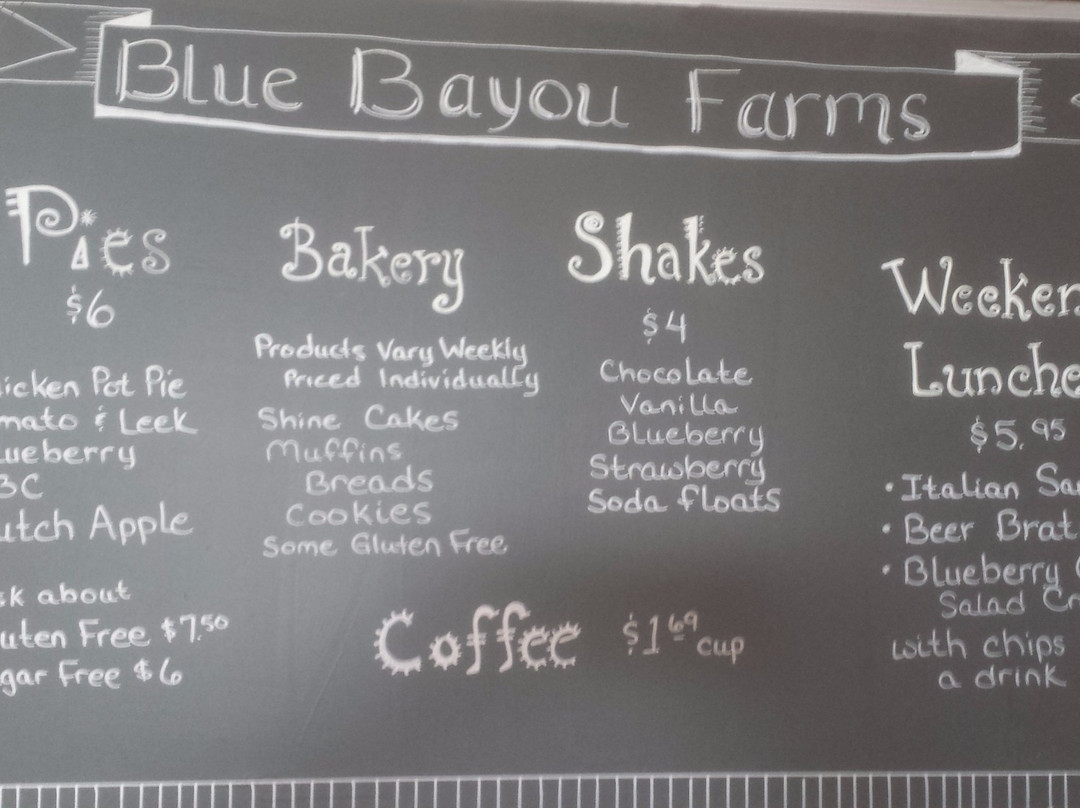 Blue Bayou Farms
Pies
$6
icken Pot Pie
mato & Leek
ueberry
BC
utch Apple
sk about
uten Free $7.50
gar Free $6
Bakery
Products Vary Weekly
Priced Individually
Shine Cakes
Muffins
Breads
Cookies
Some Gluten Free
Shakes
$4
Chocolate
Vanilla
Blueberry
Strawberry
Soda floats
Coffee $1.69 cup
Weeken
Lunche
$5.95
• Italian Sa
• Beer Brat
• Blueberry C
Salad Cr
with chips
a drink